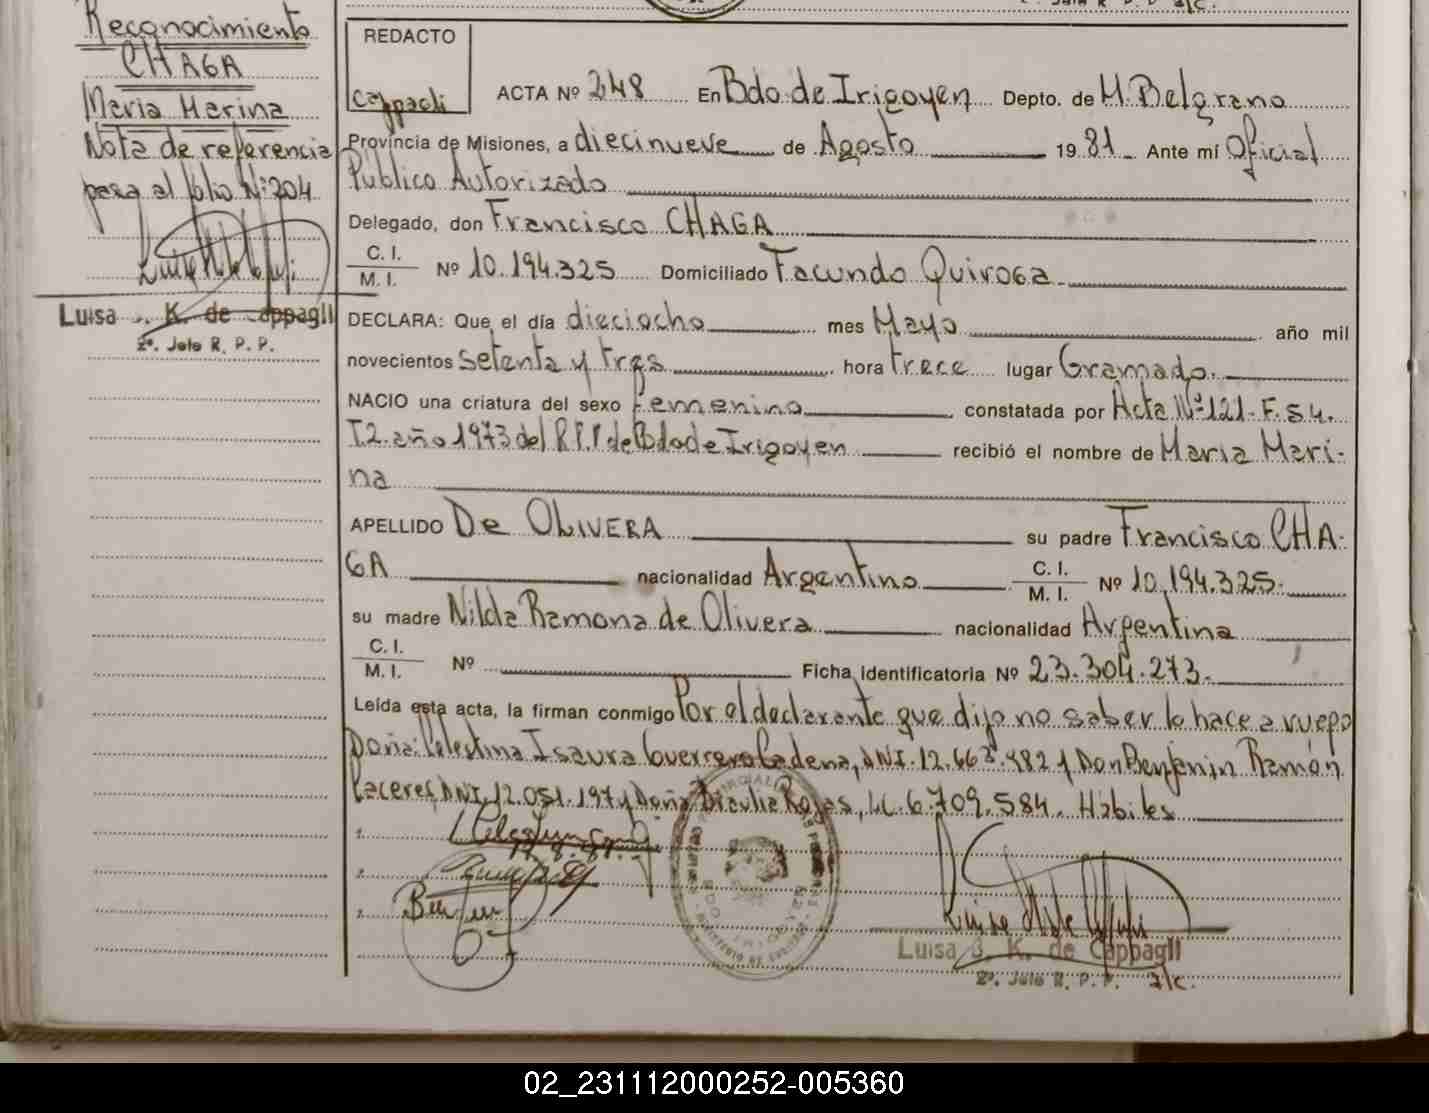 Reconocimiento
CHAGA
Maria Marina
Nota de referencia
pasa al folio Nº 204
Luisa J. K. de Cappagli
2º. Jefe R. P. P.
REDACTO
Cappagli
ACTA Nº 248 En Bdo de Irigoyen Depto. de M. Belgrano
Provincia de Misiones, a diecinueve de Agosto 19 81 Ante mí Oficial
Público Autorizado
Delegado, don Francisco CHAGA
C. I.
M. I. Nº 10.194.325 Domiciliado Facundo Quiroga
DECLARA: Que el día dieciocho mes Mayo año mil
novecientos setenta y tres hora trece lugar Gramado.
NACIO una criatura del sexo Femenino constatada por Acta Nº 121- F. 54.
T2. año 1973 del R.P.P. de Bdo de Irigoyen recibió el nombre de Maria Mari-
na
APELLIDO De OLIVERA su padre Francisco CHA-
GA nacionalidad Argentino C. I.
M. I. Nº 10.194.325.
su madre Nilda Ramona de Olivera nacionalidad Argentina
C. I.
M. I. Nº Ficha identificatoria Nº 23.304.273.
Leída esta acta, la firman conmigo Por el declarante que dijo no saber lo hace a ruego
Doña: Celestina Isaura Guerrero Cadena, DNI. 12.663.482 y Don Benjamin Ramón
Caceres, DNI. 12.051.197 y Doña Braulia Rojas, LC. 6.709.584. Hábiles
Luisa J. K. de Cappagli
2º. Jefe R. P. P. a/c.
02_231112000252-005360